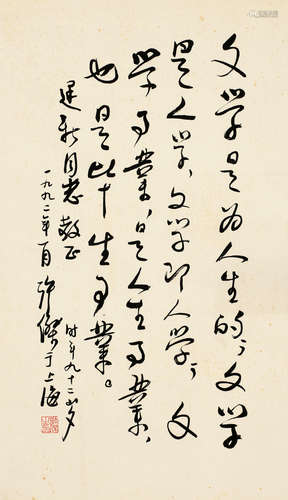 文学是为人生的，文学
是人学，文学即人学；文
学事業，是人生事業，
也是毕生事業。
新同志 教正
一九九二年 许傑于上海
时年九十二岁